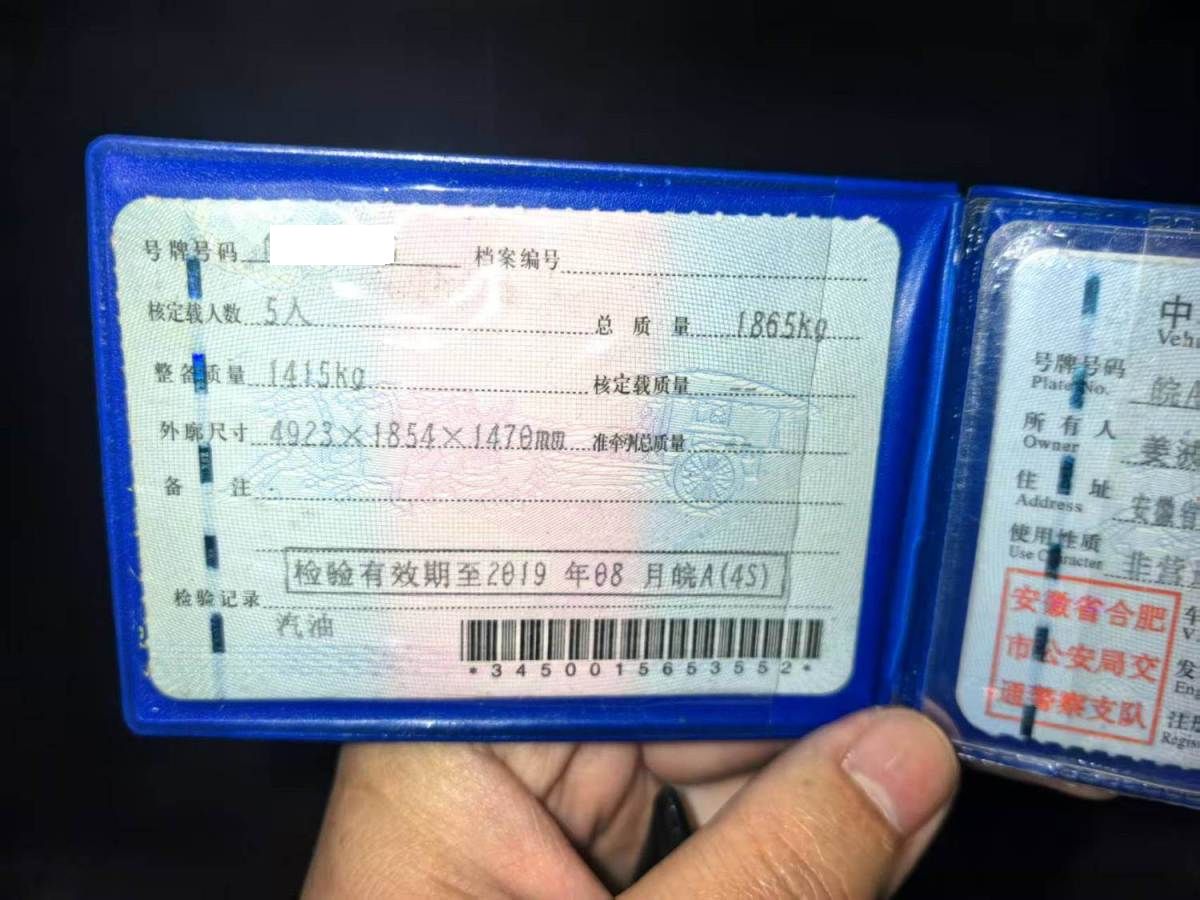 号牌号码
档案编号
核定载人数 5人
总质量 1865kg
整备质量 1415kg
核定载质量 --
外廓尺寸 4923×1854×1470mm
准牵引总质量 --
备注
检验有效期至2019年08月皖A(4S)
检验记录
汽油
*3450015653552*
中
Veh
号牌号码 皖A
Plate No.
所有人 姜
Owner
住址 安徽省
Address
使用性质 非营
Use Character
安徽省合肥
市公安局交
通警察支队
车
V
发
En
注
Regist